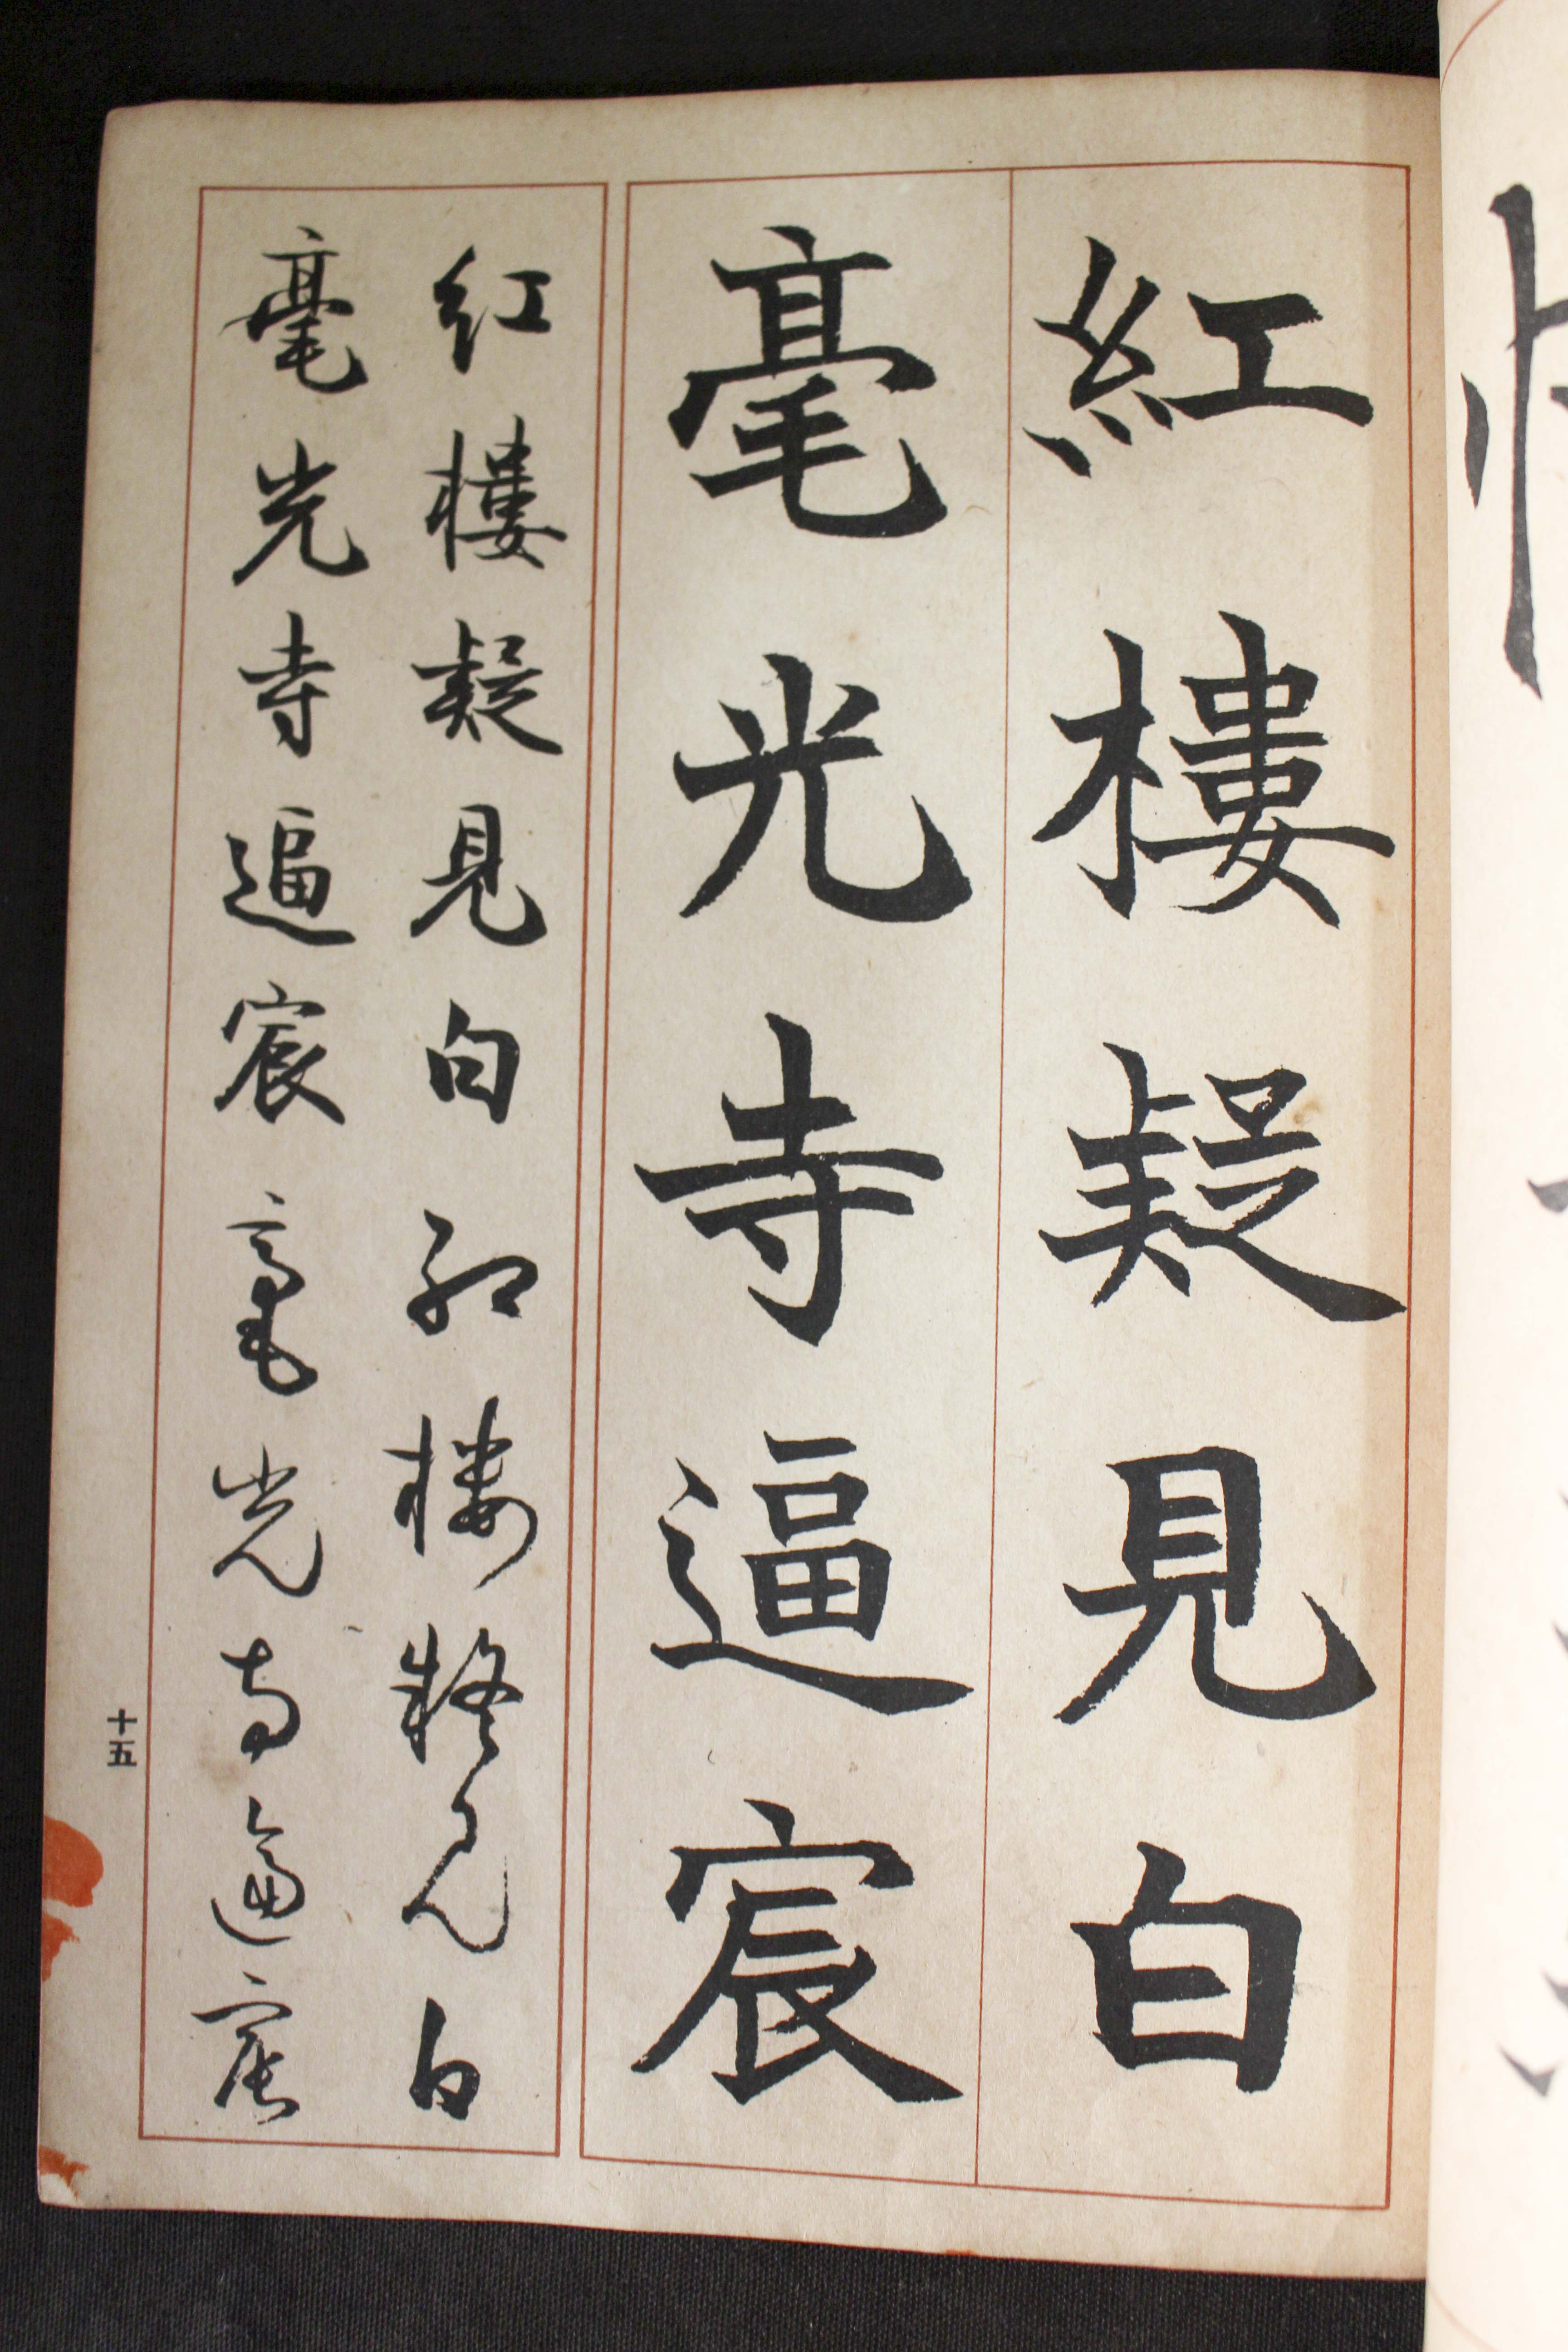 紅樓疑見白
毫光寺逼宸
紅樓疑見白紅樓疑見白
毫光寺逼宸毫光寺逼宸
十五